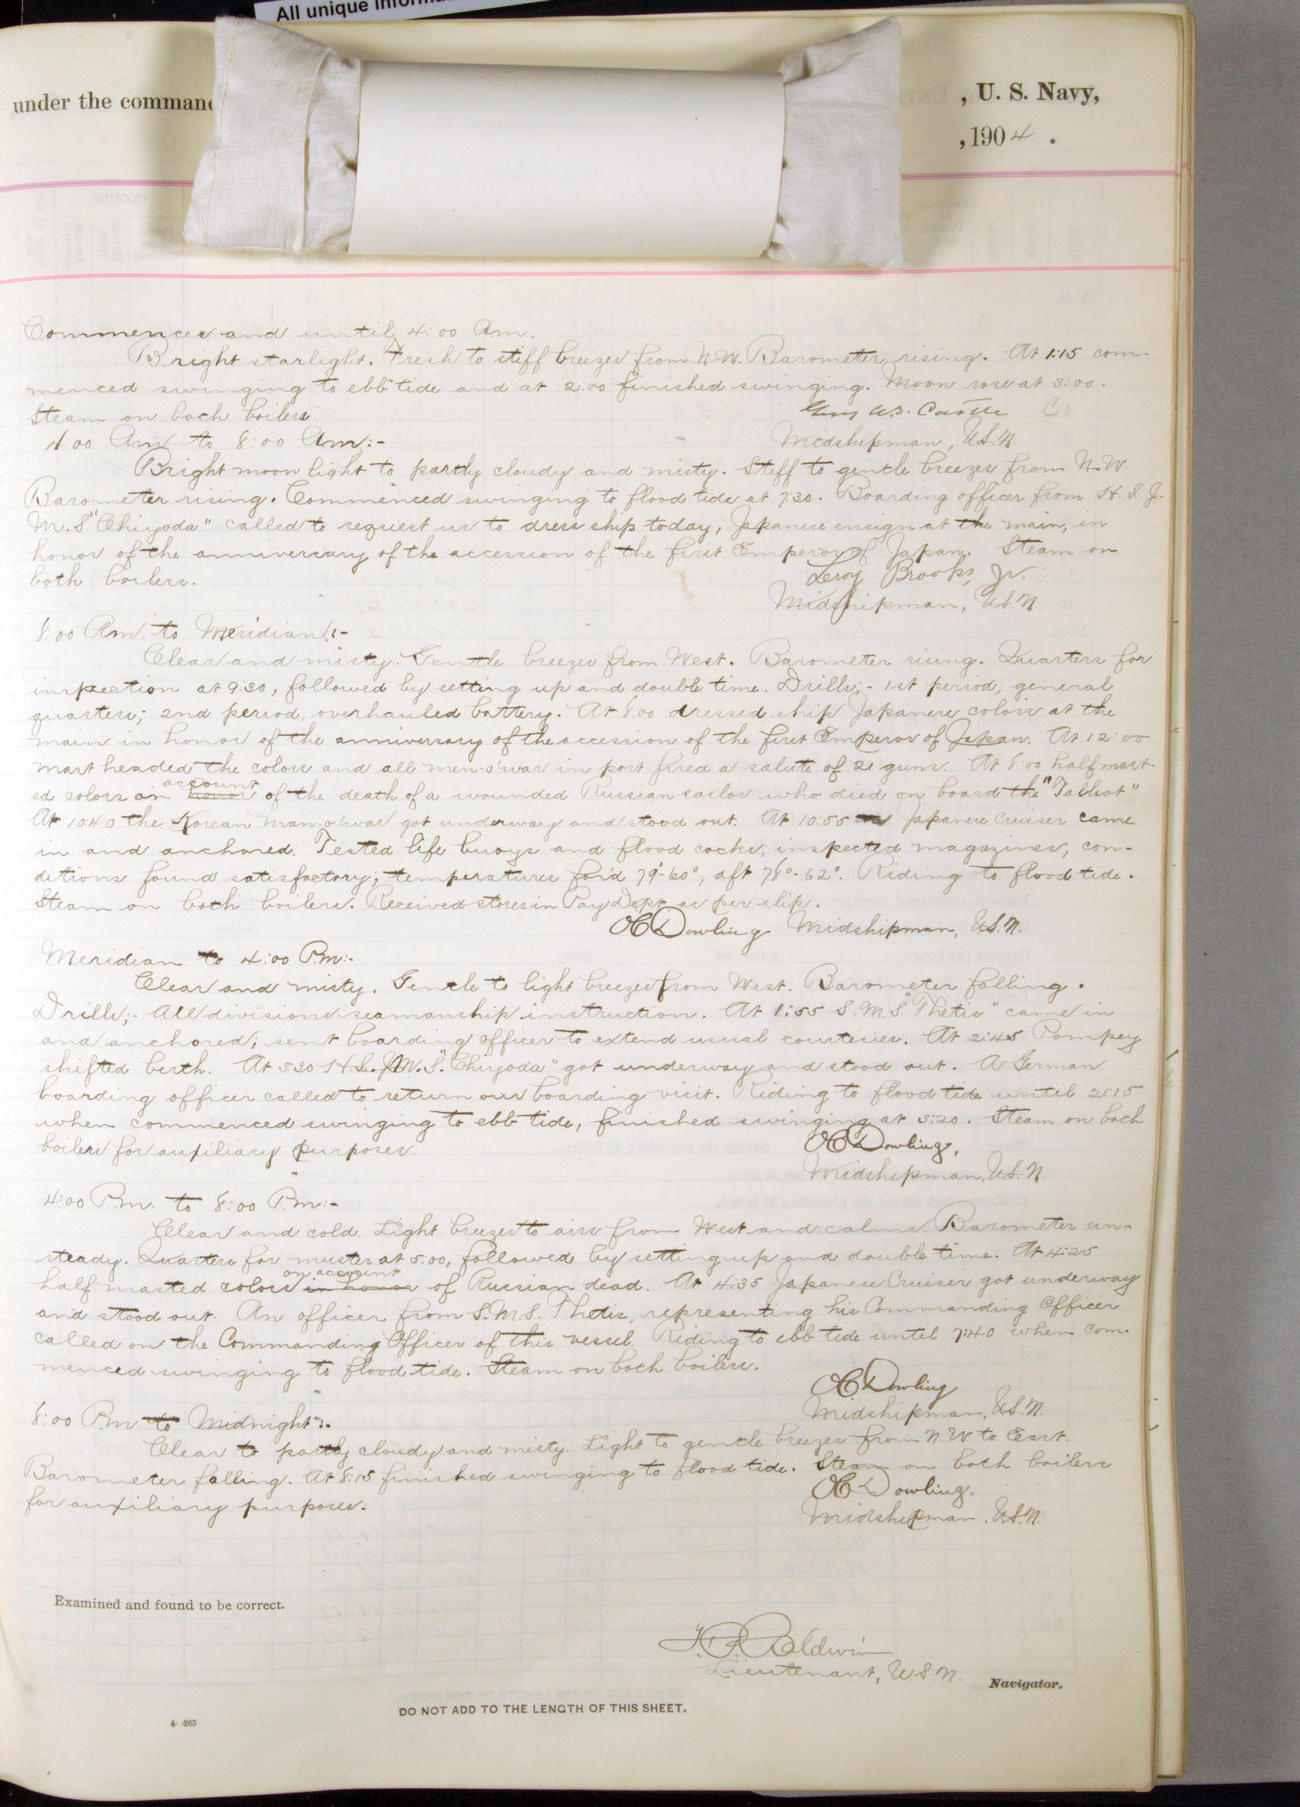 All unique informa
under the comman
, U. S. Navy,
, 1904 .
Commences and until 4:00 Am.
Bright starlight. Fresh to stiff breezes from N.W. Barometer rising. At 1:15 com-
menced swinging to ebb tide and at 2:00 finished swinging. Moon rose at 3:00.
Steam on both boilers.
Guy W.S. Castle
4:00 Am to 8:00 Am:-
Midshipman, U.S.N
Bright moon light to partly cloudy and misty. Stiff to gentle breezes from N.W.
Barometer rising. Commenced swinging to flood tide at 7:30. Boarding officer from H.I.J.
M.S "Chiyoda" called to request us to dress ship today, Japanese ensign at the main, in
honor of the anniversary of the accession of the first Emperor of Japan. Steam on
both boilers.
Leroy Brooks, Jr.
Midshipman, U.S.N
8:00 Am to Meridian:-
Clear and misty. Gentle breezes from West. Barometer rising. Quarters for
inspection at 9:30, followed by setting up and double time. Drills;- 1st period, general
quarters; 2nd period, overhauled battery. At 8:00 dressed ship Japanese colors at the
main in honor of the anniversary of the accession of the first Emperor of Japan. At 12:00
mast headed the colors and all men-o'war in port fired a salute of 21 guns. At 8:00 half mast-
ed colors on account honor of the death of a wounded Russian sailor who died on board the "Talbot"
At 10:40 the Korean man o'war got underway and stood out. At 10:55 Japanese Cruiser came
in and anchored. Tested life buoys and flood cocks, inspected magazines, con-
ditions found satisfactory; temperatures for'd 79°-60°, aft 78°-62°. Riding to flood tide.
Steam on both boilers. Received stores in Pay Dept as per slip.
OC Dowling Midshipman, U.S.N.
Meridian to 4:00 P.m:-
Clear and misty. Gentle to light breezes from West. Barometer falling.
Drills;- All divisions seamanship instruction. At 1:55 S.M.S "Thetis" came in
and anchored; sent boarding officer to extend usual courtesies. At 2:45 Pompey
shifted berth. At 3:30 H.I.J.M.S. "Chiyoda" got underway and stood out. A German
boarding officer called to return our boarding visit. Riding to flood tide until 2:15
when commenced swinging to ebb tide, finished swinging at 3:20. Steam on both
boilers for auxiliary purposes.
OC Dowling,
Midshipman, U.S.N.
4:00 P.m. to 8:00 P.m:-
Clear and cold. Light breezes to airs from West and calms. Barometer un-
steady. Quarters for muster at 5:00, followed by setting up and double time. At 4:25
half masted colors on account in honor of Russian dead. At 4:35 Japanese Cruiser got underway
and stood out. An officer from S.M.S. Thetis, representing his Commanding Officer
called on the Commanding Officer of this vessel. Riding to ebb tide until 7:40 when com-
menced swinging to flood tide. Steam on both boilers.
OC Dowling
Midshipman, U.S.N.
8:00 P.m to Midnight:-
Clear to partly cloudy and misty. Light to gentle breezes from N.W to East.
Barometer falling. At 8:15 finished swinging to flood tide. Steam on both boilers
for auxiliary purposes.
OC Dowling.
Midshipman, U.S.N.
Examined and found to be correct.
Baldwin
Lieutenant, U.S.N.
Navigator.
DO NOT ADD TO THE LENGTH OF THIS SHEET.
4-265